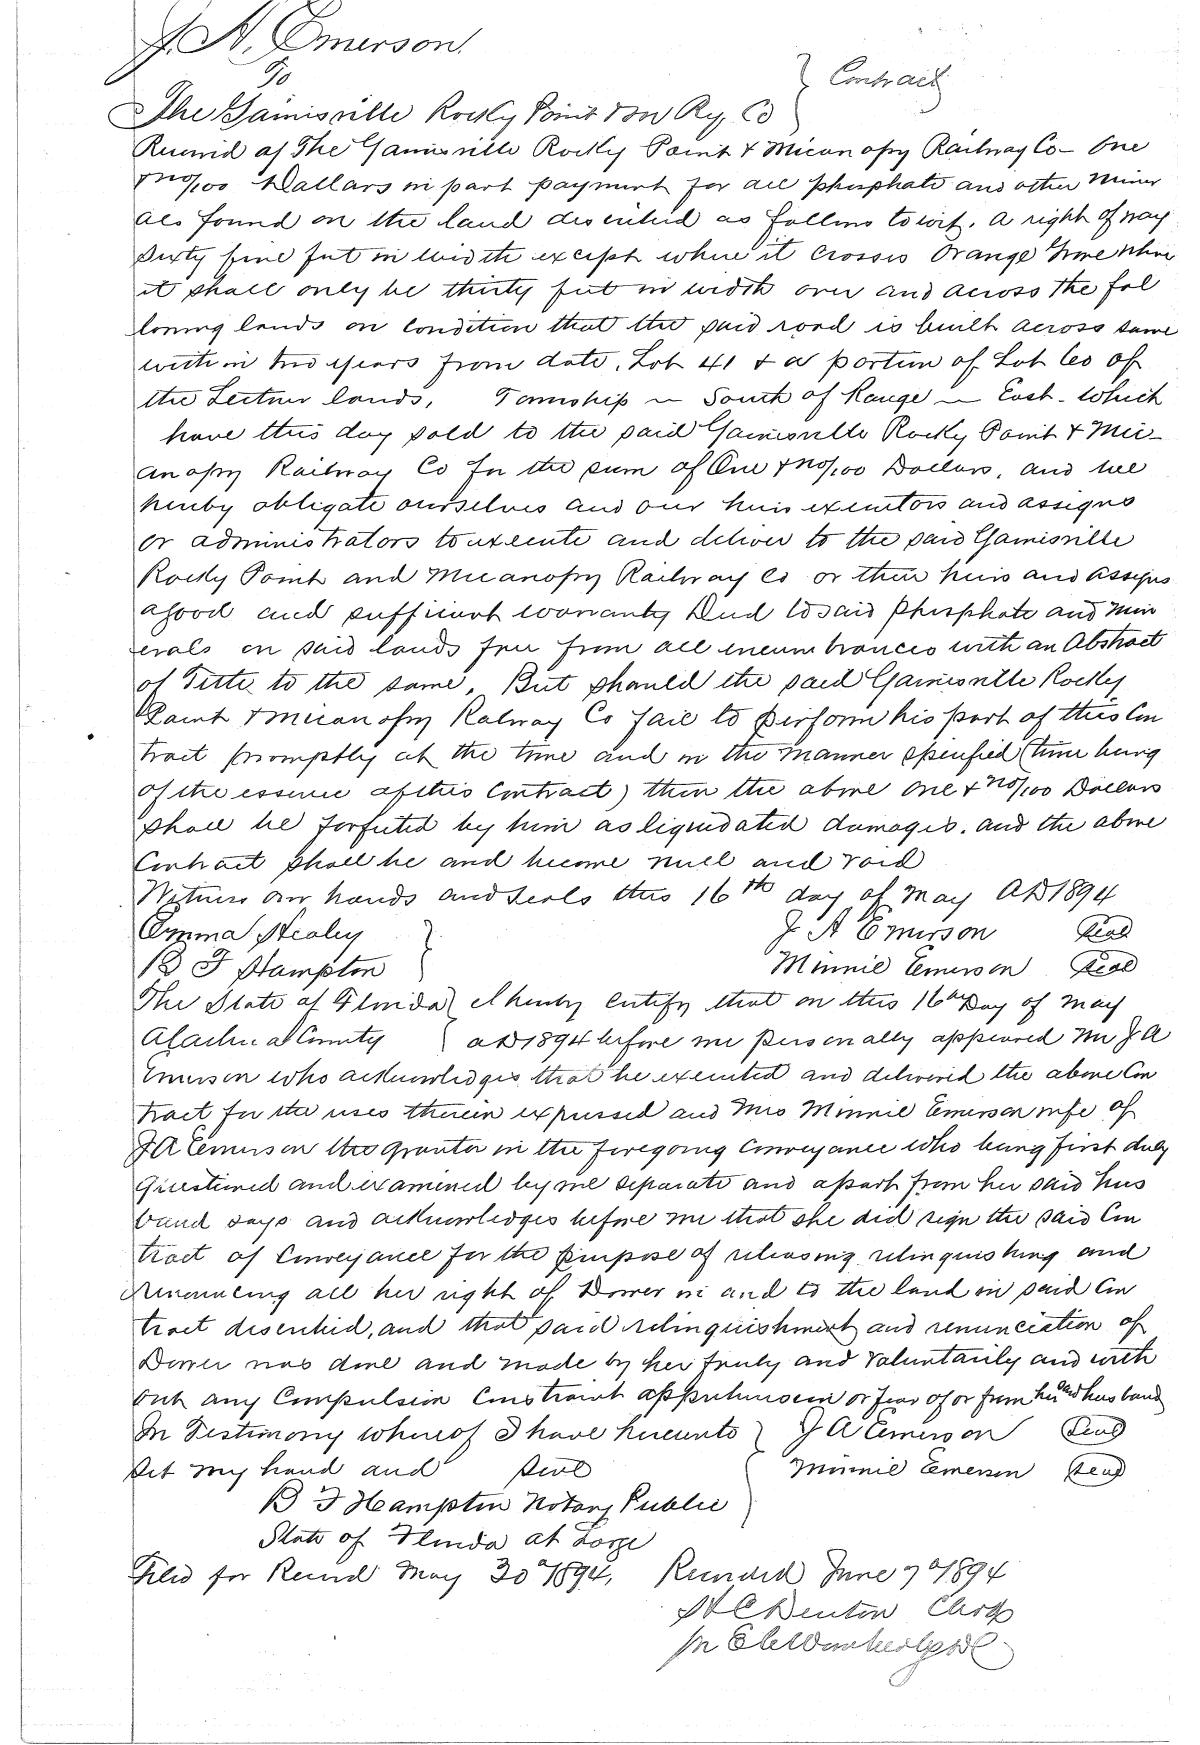 J. A. Emerson.
To } Contract
The Gainisville Rocky Point & M Ry. Co
Received of The Gainesville Rocky Point & Micanopy Railway Co - One
& no/100 Dollars in part payment for all phosphate and other miner
als found on the land described as follows to wit. A right of way
sixty five feet in width except where it crosses Orange Grove where
it shall only be thirty feet in width over and across the fol
lowing lands on condition that the said road is built across same
with in two years from date. Lot 41 & a portion of Lot 60 of
the Leitner lands, Township — South of Range — East - which
have this day sold to the said Gainesville Rocky Point & Mic-
anopy Railway Co for the sum of One & no/100 Dollars, and we
hereby obligate ourselves and our heirs executors and assigns
or administrators to execute and deliver to the said Gainesville
Rocky Point and Micanopy Railway Co or their heirs and assigns
a good and sufficient warranty Deed to said phosphate and min
erals on said lands free from all incumbrances with an Abstract
of Title to the same. But should the said Gainesville Rocky
Point & Micanopy Railway Co fail to perform his part of this Con
tract promptly at the time and in the manner specified (time being
of the essence of this Contract) then the above one & no/100 Dollars
shall be forfeited by him as liquidated damages. and the above
Contract shall be and become null and void
Witness our hands and seals this 16th day of May AD 1894
Emma Healey } J A Emerson Seal
B F Hampton } Minnie Emerson Seal
The State of Florida } I hereby certify that on this 16th Day of May
Alachua County } AD 1894 before me personally appeared Mr J A
Emerson who acknowledges that he executed and delivered the above Con
tract for the uses therein expressed and Mrs Minnie Emerson wife of
J A Emerson the grantor in the foregoing Conveyance who being first duly
Questioned and examined by me separate and apart from her said hus
band says and acknowledges before me that she did sign the said Con
tract of Conveyance for the purpose of releasing relinquishing and
renouncing all her right of Dower in and to the land in said Con
tract described, and that said relinquishment and renunciation of
Dower was done and made by her freely and Voluntarily and with
out any Compulsion Constraint apprehension or fear of or from her said husband
In Testimony whereof I have hereunto } J A Emerson Seal
set my hand and seal Minnie Emerson Seal
B F Hampton Notary Public
State of Florida at Large
Filed for Record May 30" 1894, Recorded June 7" 1894
H C Denton Clerk